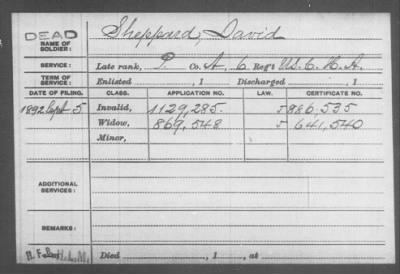 DEAD
NAME OF SOLDIER: Sheppard, David
SERVICE: Late rank, P. Co. A, 6 Reg't U.S.C.H.A.
TERM OF SERVICE: Enlisted , 1 Discharged , 1
DATE OF FILING. CLASS. APPLICATION NO. LAW. CERTIFICATE NO.
1892 Sept 5 Invalid, 1129,285. 986,535
Widow, 869,548 641,540
Minor,
ADDITIONAL SERVICES:
REMARKS:
Died , 1 , at